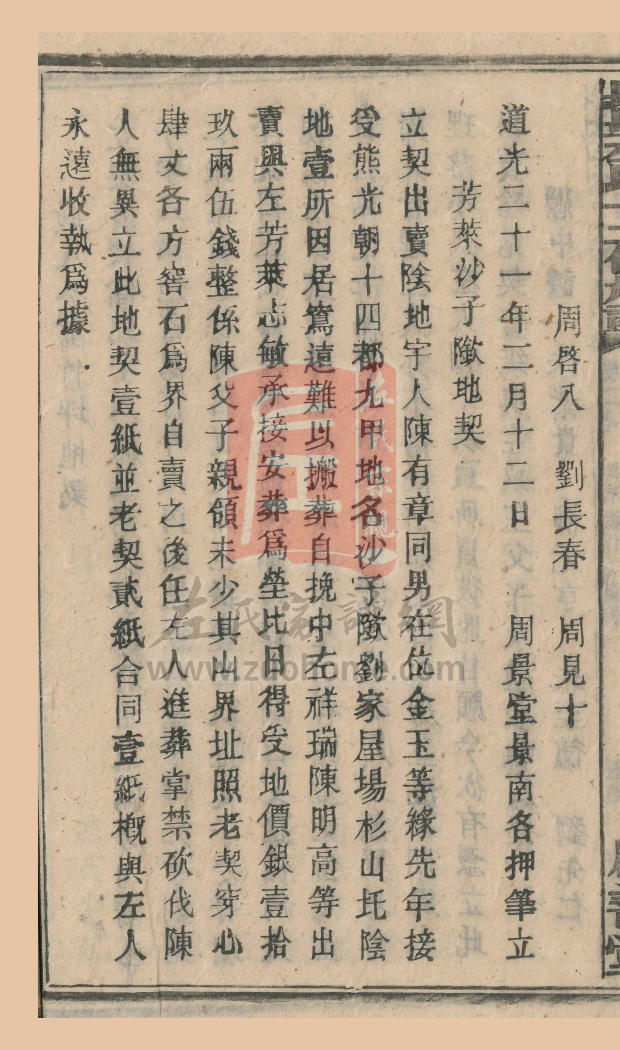 周啓八 劉長春 周見十
道光二十一年二月十二日 周景堂景南各押筆立
芳萊沙子隞地契
立契出賣陰地字人陳有章同男在位金玉等緣先年接
受熊光朝十四都九甲地名沙子隞劉家屋場杉山圫陰
地壹所因居篤遠難以搬葬自挽中左祥瑞陳明高等出
賣與左芳萊志敏承接安葬爲塋比日得受地價銀壹拾
玖兩伍錢整係陳父子親領未少其山界址照老契穿心
肆丈各方窖石爲界自賣之後任左人進葬掌禁砍伐陳
人無異立此地契壹紙並老契貳紙合同壹紙槪與左人
永遠收執爲據
左氏家譜網
www.zuohome.com